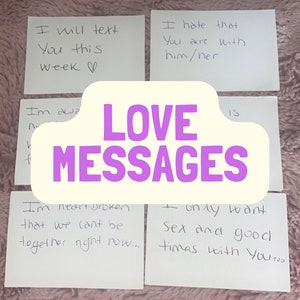 I will text
You this
week ♡
I hate that
You are with
him/her
Im
is
LOVE
MESSAGES
Im heartbroken
that we cant be
together right now...
I only want
sex and good
times with You...